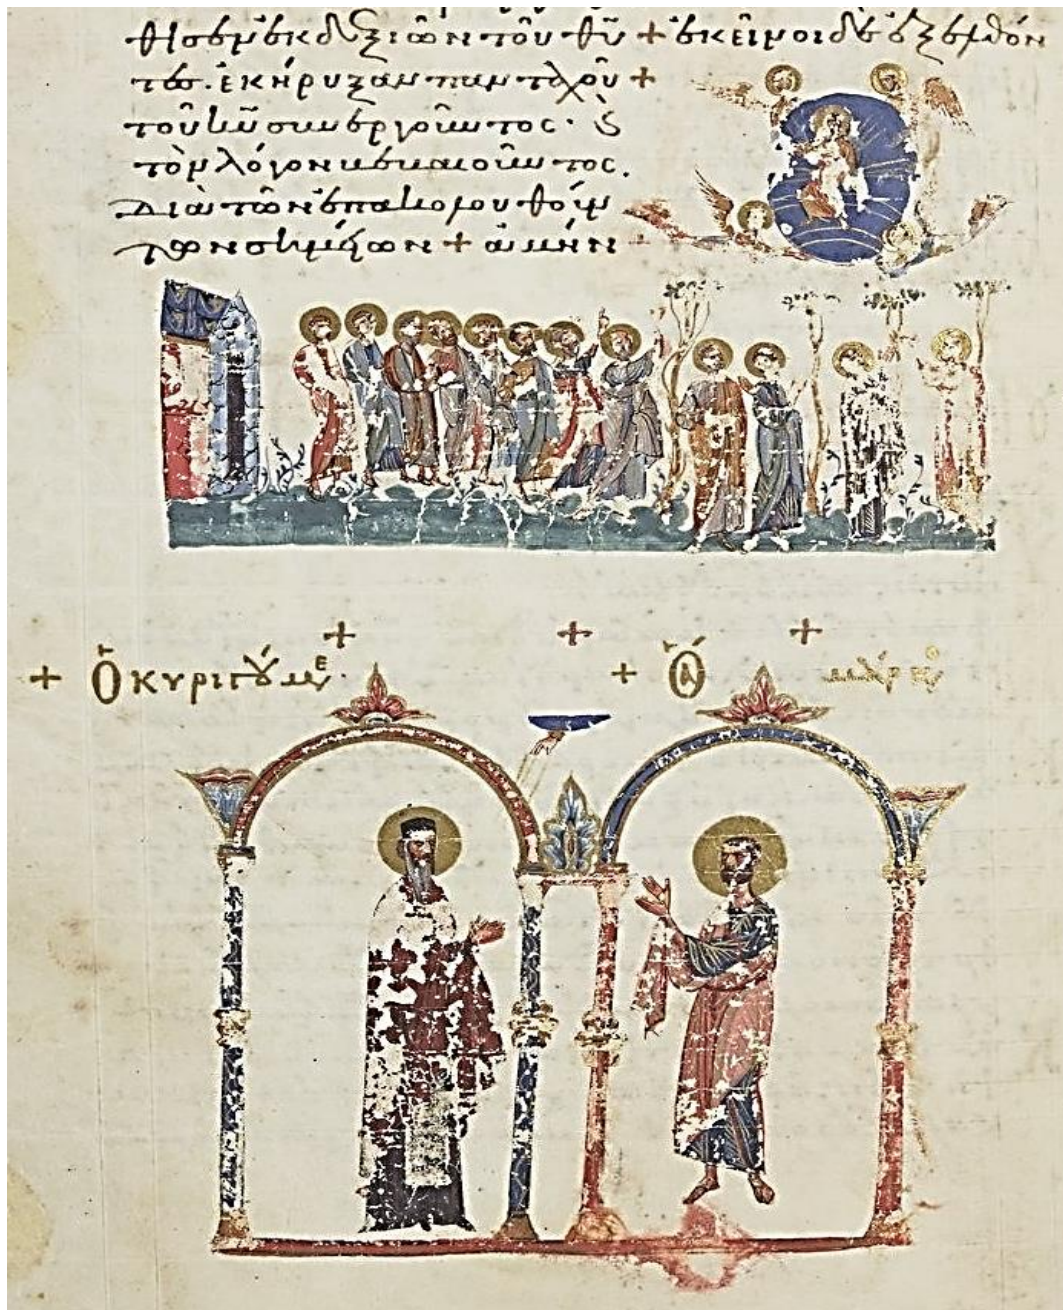 θισεν ἐκ δεξιῶν τοῦ θῦ + ἐκεῖνοι δὲ ἐξελθόν
τες ἐκήρυξαν πανταχοῦ +
τοῦ κῦ συνεργοῦντος · ϗ
τὸν λόγον βεβαιοῦντος.
διὰ τῶν ἐπακολουθούν
των σημείων + ἀμήν
+ + +
+ Ὁ κυριγούμε + Ὁ ἅ μάρκο